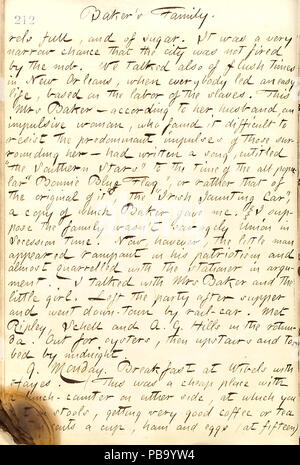 212
Baker's Family.
rels full, and of sugar. It was a very
narrow chance that the city was not fired
by the mob. We talked also of flush times
in New Orleans, when everybody led an easy
life, based on the labor of the slaves. This
Mrs Baker — according to her husband, an
impulsive woman, who found it difficult to
resist the predominant impulses of those sur-
rounding her — had written a song, entitled
"the Southern Stars" to the tune of the all popu-
lar "Bonnie Blue Flag", or rather that of
the original of it "the Irish Jaunting Car,"
a copy of which Baker gave me. I sup-
pose the family wasn't Union in
Secession time. Now, however the little man
appeared rampant in his patriotism, and
almost quarrelled with the stationer in argu-
ment. I talked with Mrs Baker and the
little girl. Left the party after supper
and went down-town by rail-car. Met
Ripley, Schell and A. G. Hills in the rotun-
da. Out for oysters, then upstairs and to
bed by midnight.
9. Monday. Breakfast at Wibels with
Hayes. This was a cheap place with
lunch-counter on either side, at which you
on stools, getting very good coffee or tea
cents a cup, ham and eggs (at fifteen)
alamy
Image ID: PB9YW4
www.alamy.com